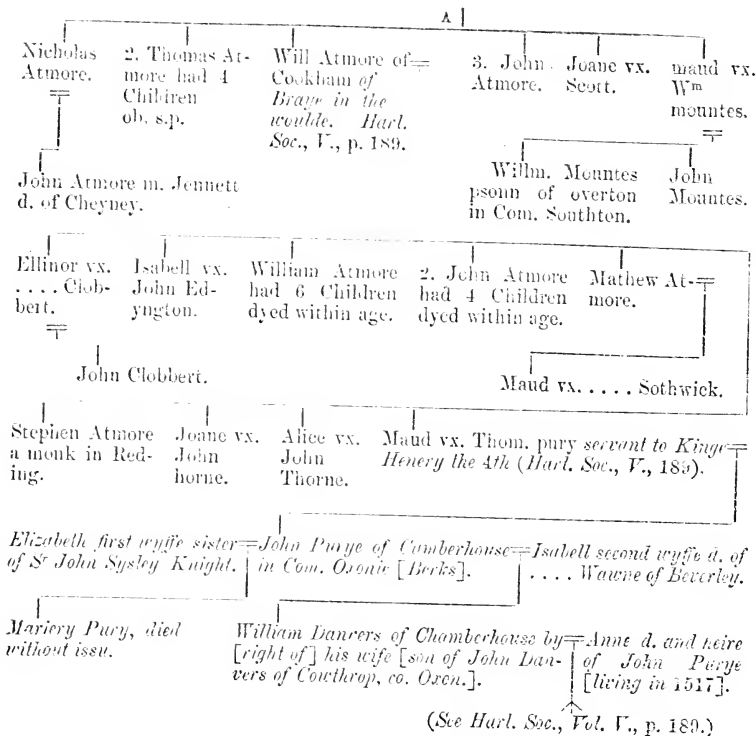 A
Nicholas
Atmore.
2. Thomas At-
more had 4
Children
ob. s.p.
Will Atmore of
Cookham of
Braye in the
woulde. Harl.
Soc., V., p. 189.
3. John
Atmore.
Joane vx.
Scott.
maud vx.
Wm
mountes.
John Atmore m. Jennett
d. of Cheyney.
Willm. Mountes
psonn of overton
in Com. Southton.
John
Mountes.
Ellinor vx.
. . . . Clob-
bert.
Isabell vx.
John Ed-
yngton.
William Atmore
had 6 Children
dyed within age.
2. John Atmore
had 4 Children
dyed within age.
Mathew At-
more.
John Clobbert.
Maud vx. . . . . Sothwick.
Stephen Atmore
a monk in Red-
ing.
Joane vx.
John
horne.
Alice vx.
John
Thorne.
Maud vx. Thom. pury servant to Kinge
Henery the 4th (Harl. Soc., V., 189).
Elizabeth first wyffe sister
of Sr John Sysley Knight.
John Purye of Camberhouse
in Com. Oxonie [Berks].
Isabell second wyffe d. of
. . . . Wawne of Beverley.
Mariery Pury, died
without issu.
William Danvers of Chamberhouse by
[right of] his wife [son of John Dan-
vers of Cowthrop, co. Oxon.].
Anne d. and heire
of John Purye
[living in 1517].
(See Harl. Soc., Vol. V., p. 189.)